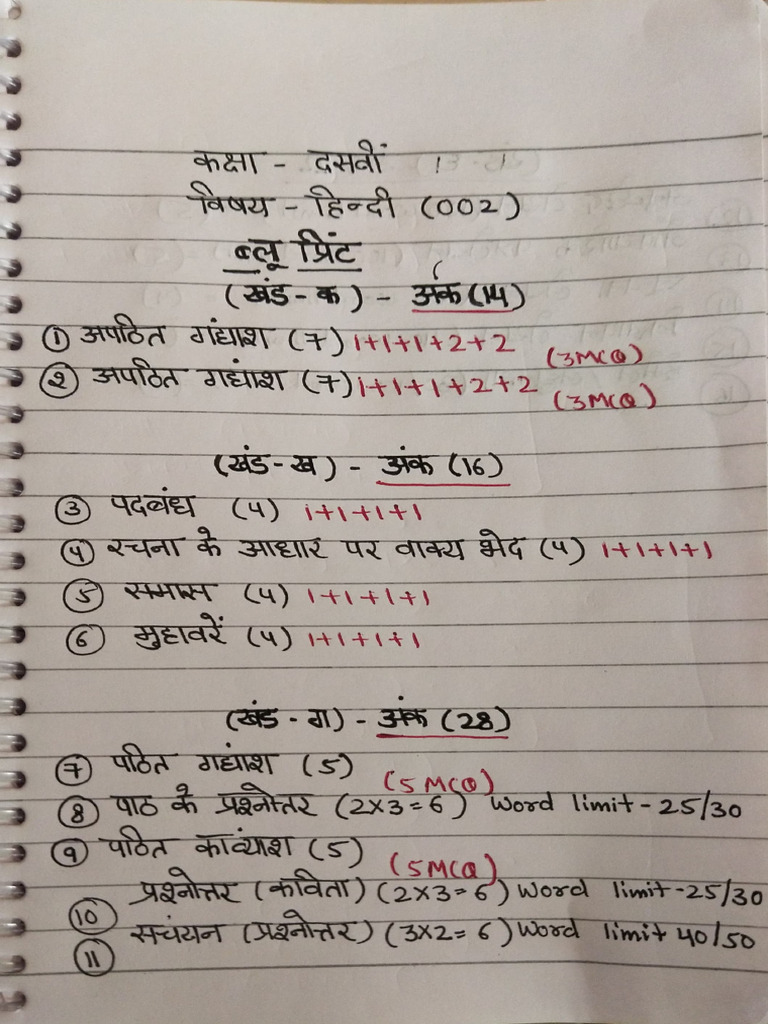 कक्षा - दसवीं
विषय - हिन्दी (002)
ब्लू प्रिंट
(खंड - क) - अंक (14)
① अपठित गंद्याश (7) 1+1+1+2+2 (3MCQ)
② अपठित गद्यांश (7) 1+1+1+2+2 (3MCQ)
(खंड - ख) - अंक (16)
③ पदबंध (4) 1+1+1+1
④ रचना के आधार पर वाक्य भेद (4) 1+1+1+1
⑤ समास (4) 1+1+1+1
⑥ मुहावरें (4) 1+1+1+1
(खंड - ग) - अंक (28)
⑦ पठित गद्यांश (5) (5MCQ)
⑧ पाठ के प्रश्नोत्तर (2x3=6) Word limit - 25/30
⑨ पठित काव्यांश (5) (5MCQ)
⑩ प्रश्नोत्तर (कविता) (2x3=6) Word limit -25/30
⑪ सचंयन (प्रश्नोत्तर) (3x2=6) Word limit 40/50